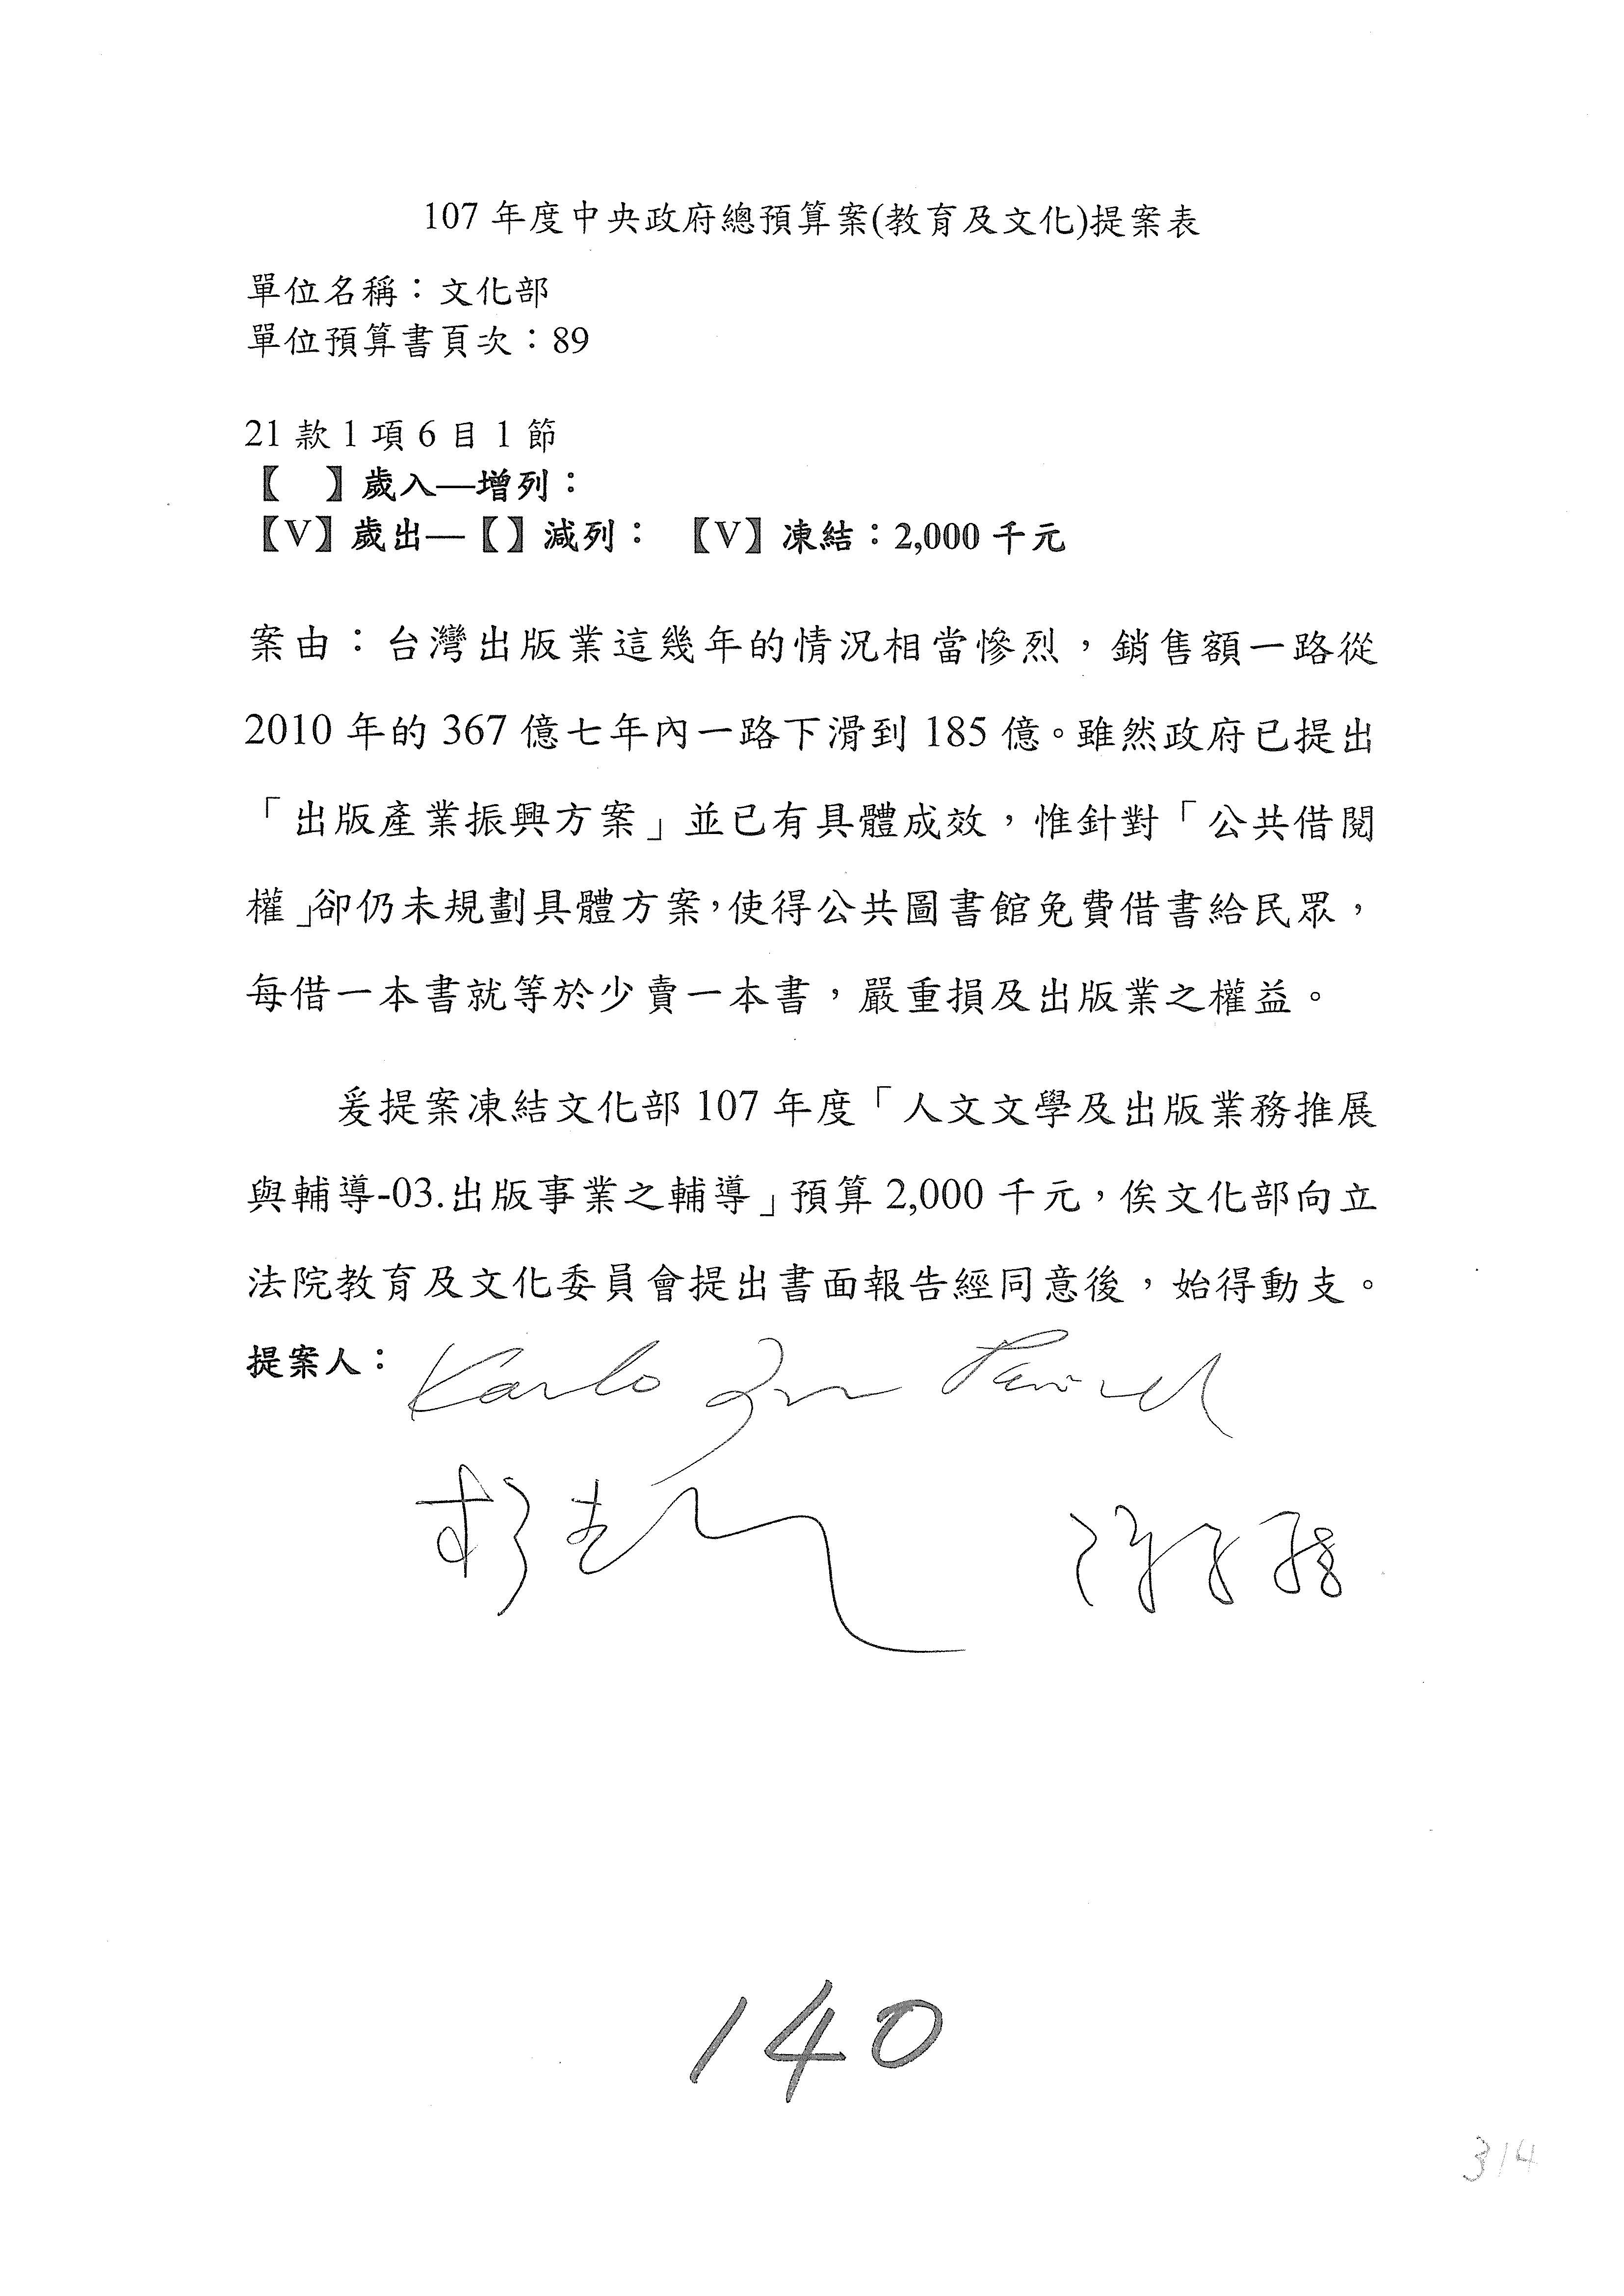 107 年度中央政府總預算案(教育及文化)提案表
單位名稱：文化部
單位預算書頁次：89
21 款 1 項 6 目 1 節
【　】歲入—增列：
【V】歲出—【】減列：　【V】凍結：2,000 千元
案由：台灣出版業這幾年的情況相當慘烈，銷售額一路從
2010 年的 367 億七年內一路下滑到 185 億。雖然政府已提出
「出版產業振興方案」並已有具體成效，惟針對「公共借閱
權」卻仍未規劃具體方案，使得公共圖書館免費借書給民眾，
每借一本書就等於少賣一本書，嚴重損及出版業之權益。
爰提案凍結文化部 107 年度「人文文學及出版業務推展
與輔導-03.出版事業之輔導」預算 2,000 千元，俟文化部向立
法院教育及文化委員會提出書面報告經同意後，始得動支。
提案人：
140
314